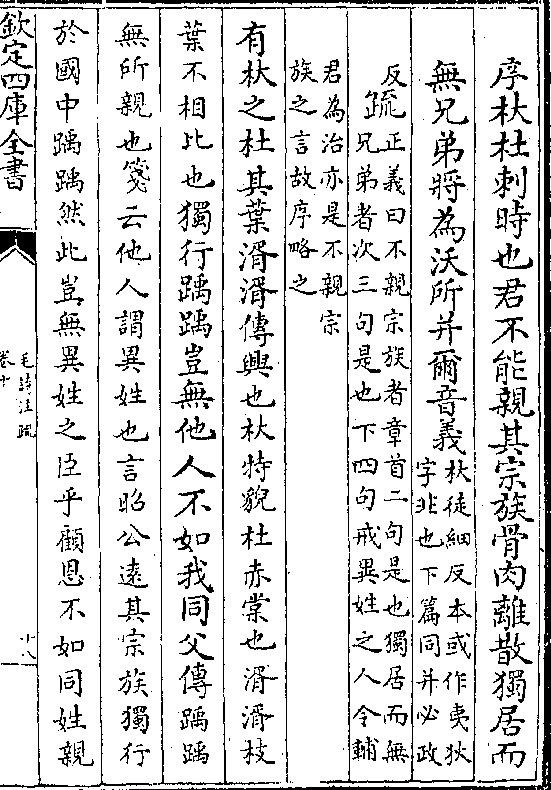 序杕杜刺時也君不能親其宗族骨肉離散獨居而
無兄弟將為沃所并爾音義
杕徒細反本或作夷狄
字非也下篇同并必政
反
疏
正義曰不親宗族者章首二句是也獨居而無
兄弟者次三句是也下四句戒異姓之人令輔
君為治亦是不親宗
族之言故序略之
有杕之杜其葉湑湑傳興也杕特貌杜赤棠也湑湑枝
葉不相比也獨行踽踽豈無他人不如我同父傳踽踽
無所親也箋云他人謂異姓也言昭公遠其宗族獨行
於國中踽踽然此豈無異姓之臣乎顧恩不如同姓親
欽定四庫全書
毛詩注疏
卷十
十八